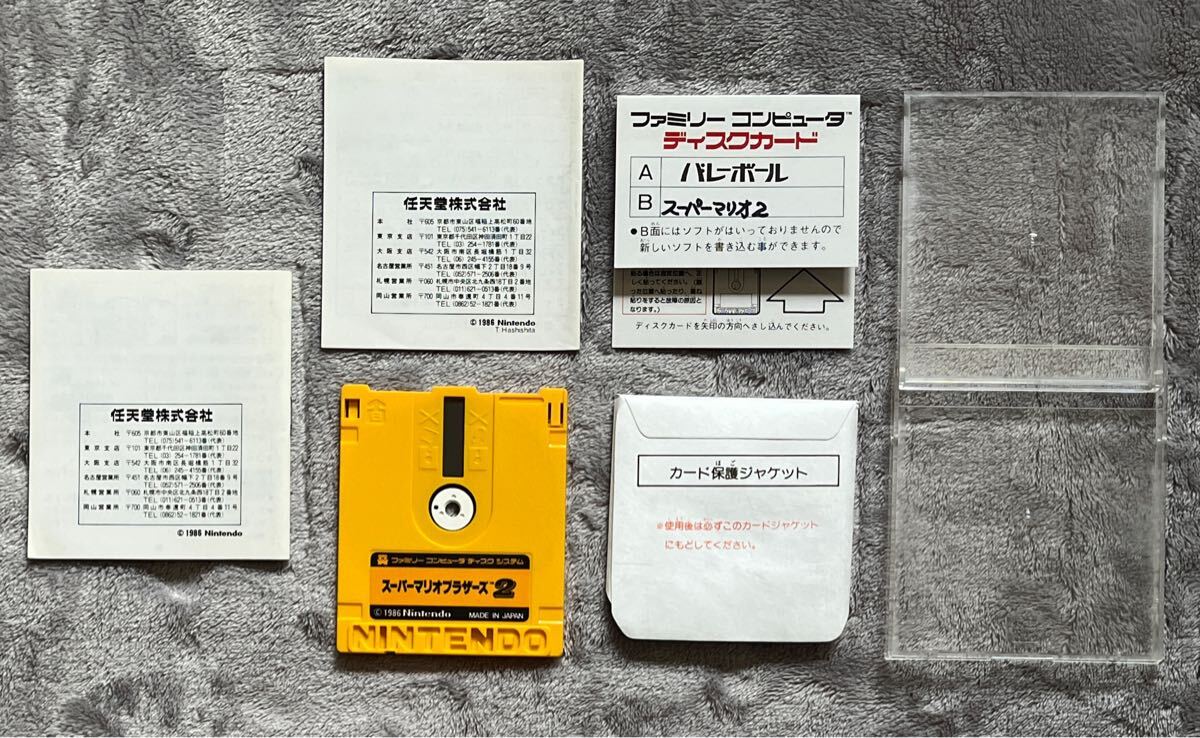 任天堂株式会社
本 社 〒605 京都市東山区福稲上高松町60番地
TEL (075)541-6113番(代表)
東京支店 〒101 東京都千代田区神田須田町1丁目22
TEL (03) 254-1781番(代表)
大阪支店 〒542 大阪市南区長堀橋筋1丁目32
TEL (06) 245-4155番(代表)
名古屋営業所 〒451 名古屋市西区幅下2丁目18番9号
TEL (052)571-2506番(代表)
札幌営業所 〒060 札幌市中央区北九条西18丁目2番地
TEL (011)621-0513番(代表)
岡山営業所 〒700 岡山市奉還町4丁目4番11号
TEL (0862)52-1821番(代表)
© 1986 Nintendo
T.Hashishita
ファミリー コンピュータ™
ディスクカード
A バレーボール
B スーパーマリオ2
●B面にはソフトがはいっておりませんので
新しいソフトを書き込む事ができます。
しく貼ってください。(誤
った位置へ貼ったり、重ね
貼りをすると故障の原因と
なります。)
ディスクカードを矢印の方向へさし込んでください。
任天堂株式会社
本 社 〒605 京都市東山区福稲上高松町60番地
TEL (075)541-6113番(代表)
東京支店 〒101 東京都千代田区神田須田町1丁目22
TEL (03) 254-1781番(代表)
大阪支店 〒542 大阪市南区長堀橋筋1丁目32
TEL (06) 245-4155番(代表)
名古屋営業所 〒451 名古屋市西区幅下2丁目18番9号
TEL (052)571-2506番(代表)
札幌営業所 〒060 札幌市中央区北九条西18丁目2番地
TEL (011)621-0513番(代表)
岡山営業所 〒700 岡山市奉還町4丁目4番11号
TEL (0862)52-1821番(代表)
© 1986 Nintendo
ファミリー コンピュータ ディスク システム
スーパーマリオブラザーズ™2
© 1986 Nintendo MADE IN JAPAN
NINTENDO
カード保護ジャケット
※使用後は必ずこのカードジャケット
にもどしてください。